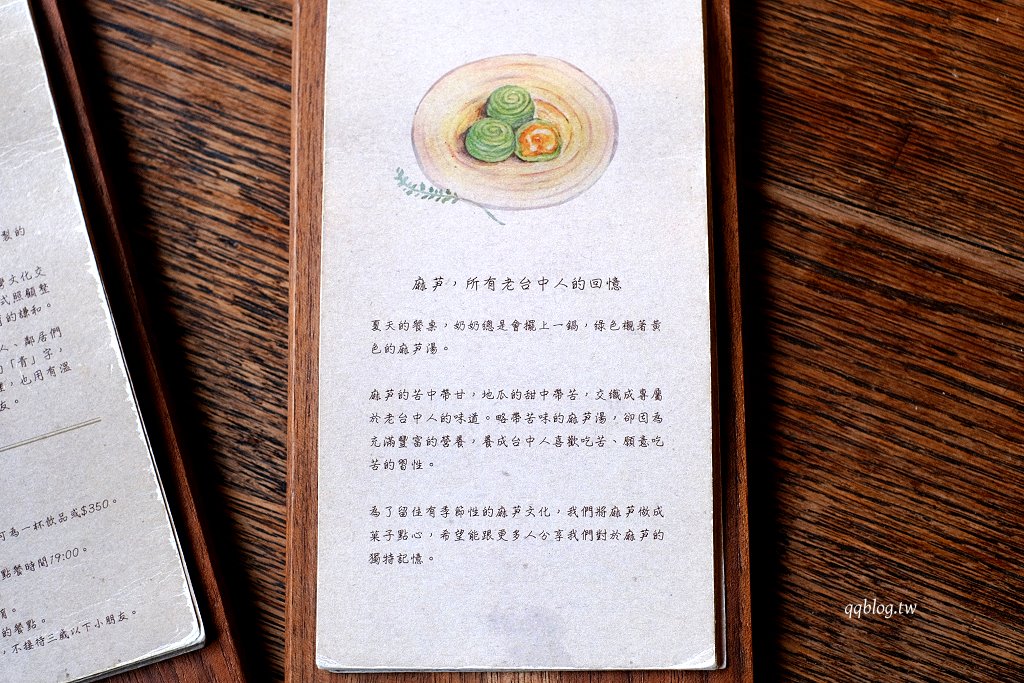 製的
灣文化交
式照顧整
有的謙和。
人、鄰居們
的「青」字，
也用有溫
友。
可為一杯飲品或$350。
點餐時間19:00。
的餐點。
，不接待三歲以下小朋友。
麻芛，所有老台中人的回憶
夏天的餐桌，奶奶總是會擺上一鍋，綠色襯著黃
色的麻芛湯。
麻芛的苦中帶甘，地瓜的甜中帶苦，交織成專屬
於老台中人的味道。略帶苦味的麻芛湯，卻因為
充滿豐富的營養，養成台中人喜歡吃苦、願意吃
苦的習性。
為了留住有季節性的麻芛文化，我們將麻芛做成
菓子點心，希望能跟更多人分享我們對於麻芛的
獨特記憶。
qqblog.tw